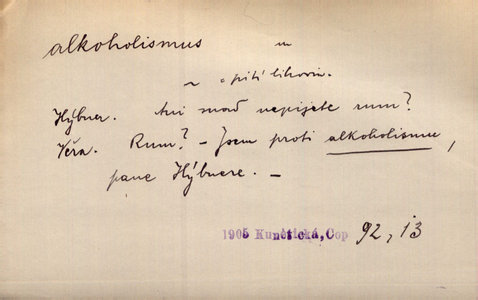 alkoholismus m
~ pití lihovin.
Hýbner. Ani moď nepijete rum?
Věra. Rum? – Jsem proti alkoholismu,
pane Hýbnere. –
1905 Kunětická, Cop 92, 13